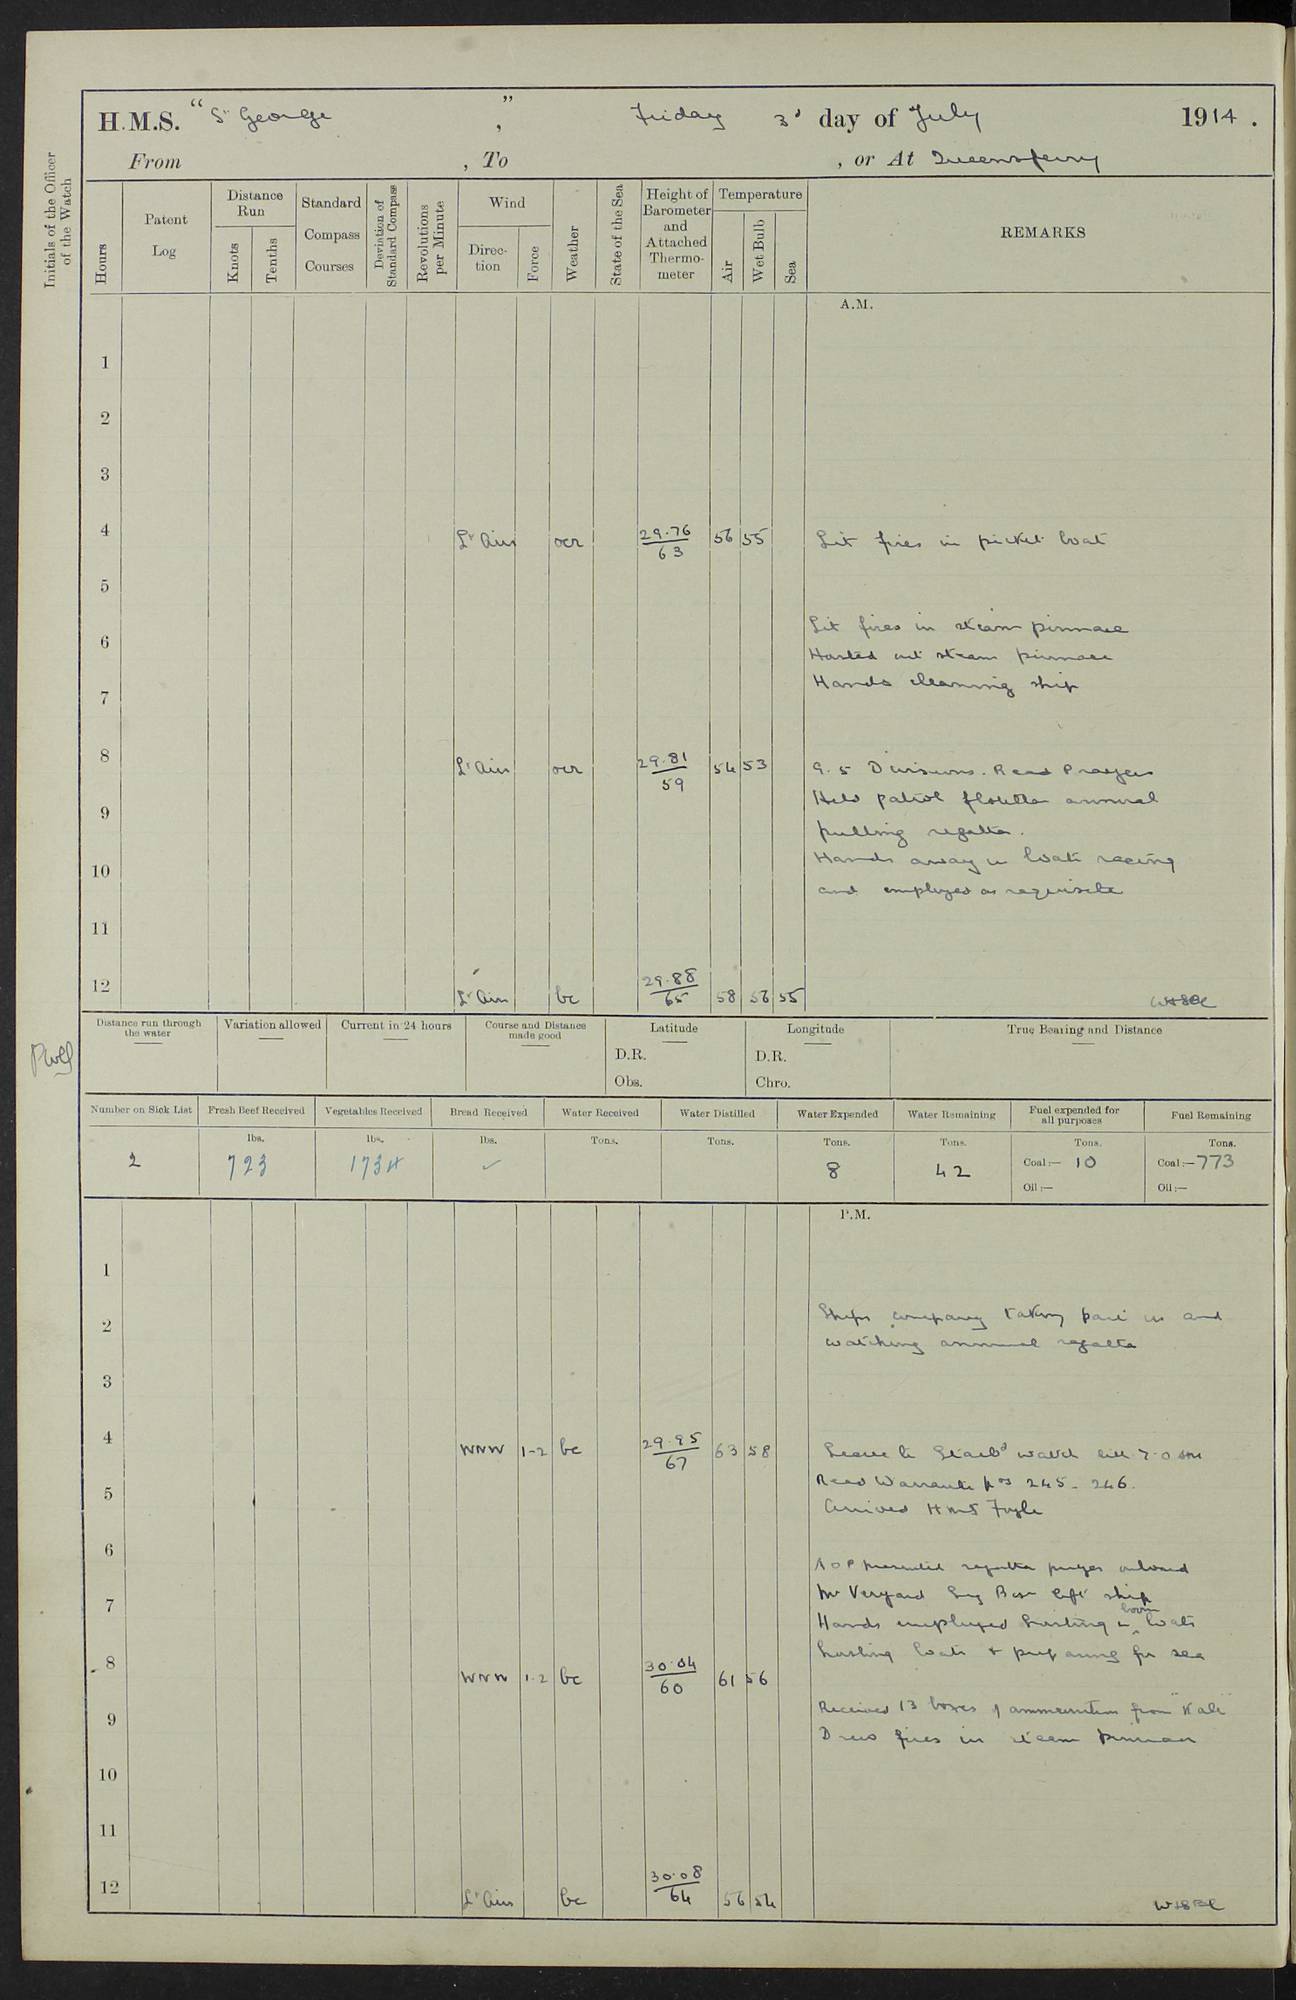 H.M.S. "St George", Friday 3d day of July 1914.
From , To , or At Queensferry
Initials of the Officer of the Watch
Hours
Patent Log
Distance Run
Knots
Tenths
Standard Compass Courses
Deviation of Standard Compass
Revolutions per Minute
Wind
Direction
Force
Weather
State of the Sea
Height of Barometer and Attached Thermometer
Temperature
Air
Wet Bulb
Sea
REMARKS
A.M.
1
2
3
4 Lt Airs ocr 29.76/63 56 55 Lit fires in picket boat
5
Lit fires in steam pinnace
6
Hoisted out steam pinnace
Hands cleaning ship
7
8 Lt Airs ocr 29.81/59 54 53 9.5 Divisions. Read Prayers
Held patrol flotilla annual
9
pulling regatta.
Hands away in boats racing
10
and employed as requisite
11
12 Lt Airs bc 29.88/65 58 56 55
Distance run through the water
Variation allowed
Current in 24 hours
Course and Distance made good
Latitude
D.R.
Obs.
Longitude
D.R.
Chro.
True Bearing and Distance
Number on Sick List
Fresh Beef Received
Vegetables Received
Bread Received
Water Received
Water Distilled
Water Expended
Water Remaining
Fuel expended for all purposes
Fuel Remaining
lbs. lbs. lbs. Tons. Tons. Tons. Tons. Tons. Tons.
2 723 173 ✓ 8 42 Coal:— 10 Coal:—773
Oil:— Oil:—
P.M.
1
Ships company taking part in and
2
watching annual regatta
3
4 WNW 1-2 bc 29.95/67 63 58 Leave to Starbd watch till 7.0 am
Read Warrants nos 245 - 246.
5
Arrived HMS Foyle
6
presented regatta prizes onboard
Mr Veryard left ship
7
Hands employed hoisting in boom boats
hoisting boats & preparing for sea
8 WNW 1-2 bc 30.04/60 61 56
Received 13 boxes of ammunition from "Kale"
9
Drew fires in steam pinnace
10
11
12 Lt Airs bc 30.08/64 56 54